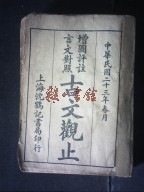 中華民國二十三年春月
增圖評註
言文對照
古文觀止
上海沈鶴記書局印行